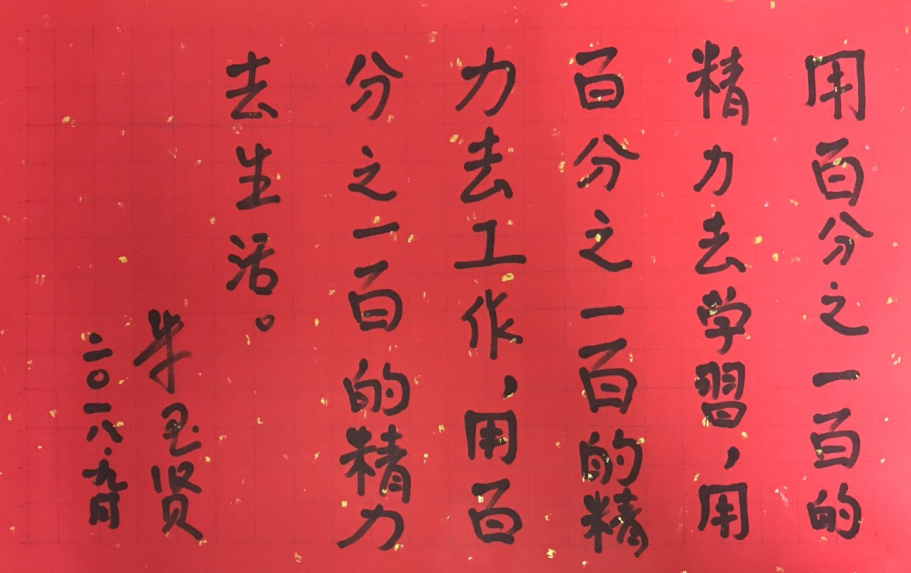 用百分之一百的
精力去学習，用
百分之一百的精
力去工作，用百
分之一百的精力
去生活。
牛玉贤
二〇一八·九月